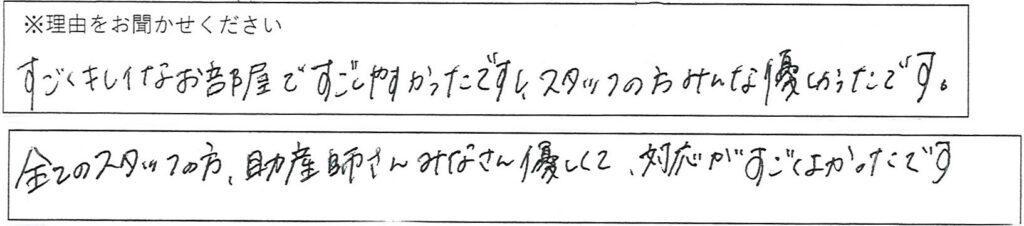 ※理由をお聞かせください
すごくキレイなお部屋ですごしやすかったですし、スタッフの方みんな優しかったです。
全てのスタッフの方、助産師さんみなさん優しくて、対応がすごくよかったです